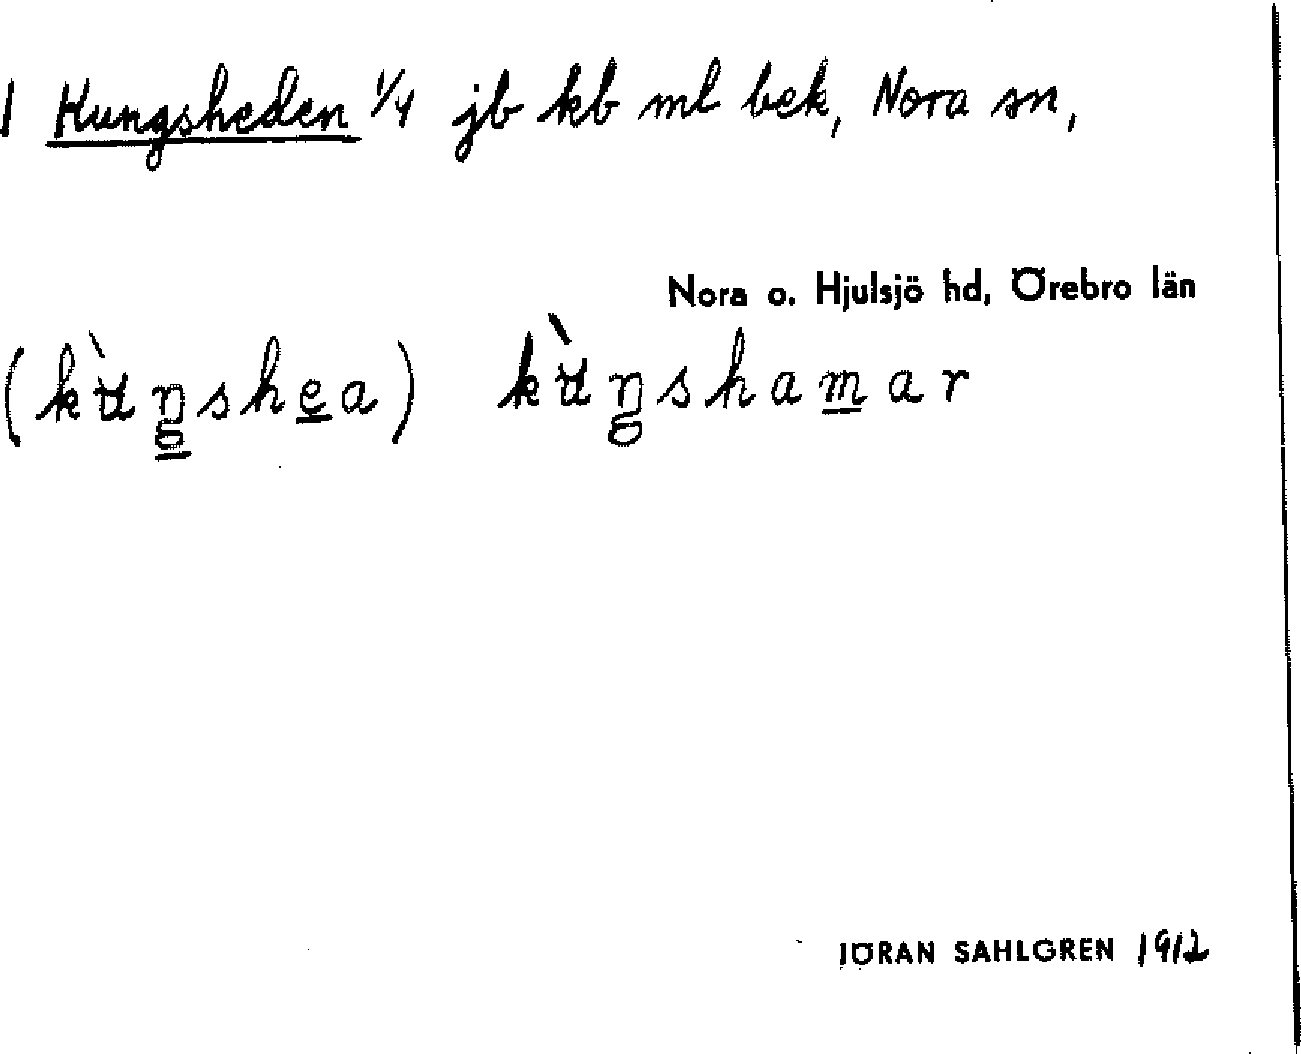 1 Kungsheden 1/4 jb kb ml bek, Nora sn,
Nora o. Hjulsjö hd, Örebro län
(kʉ̀ŋshea) kʉ̀ŋshamar
JÖRAN SAHLGREN 1912